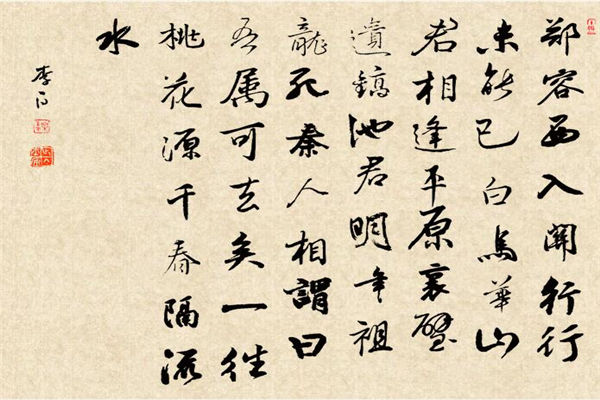 郑容西入開行行
未能已白馬華山
君相逢平原裏璧
遺鎬池君明年祖
龍死秦人相謂曰
吾属可去矣一往
桃花源千春隔流
水
李